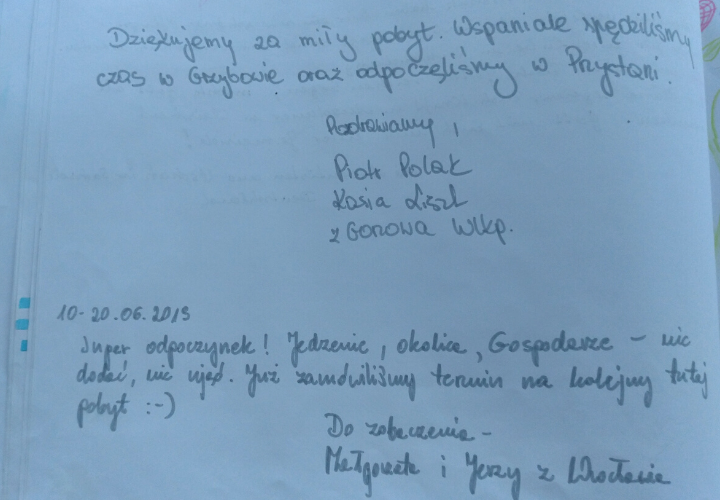 Dziękujemy za miły pobyt. Wspaniale spędziliśmy
czas w Grzybowie oraz odpoczęliśmy w Przystani.
Pozdrawiamy,
Piotr Polak
Kasia
z Gorzowa Wlkp.
10-20.06.2013
Super odpoczynek! Jedzenie, okolica, Gospodarze - nic
dodać, nic ująć. Już zamówiliśmy termin na kolejny tutaj
pobyt :-)
Do zobaczenia -
Małgorzata i Jerzy z Wrocławia